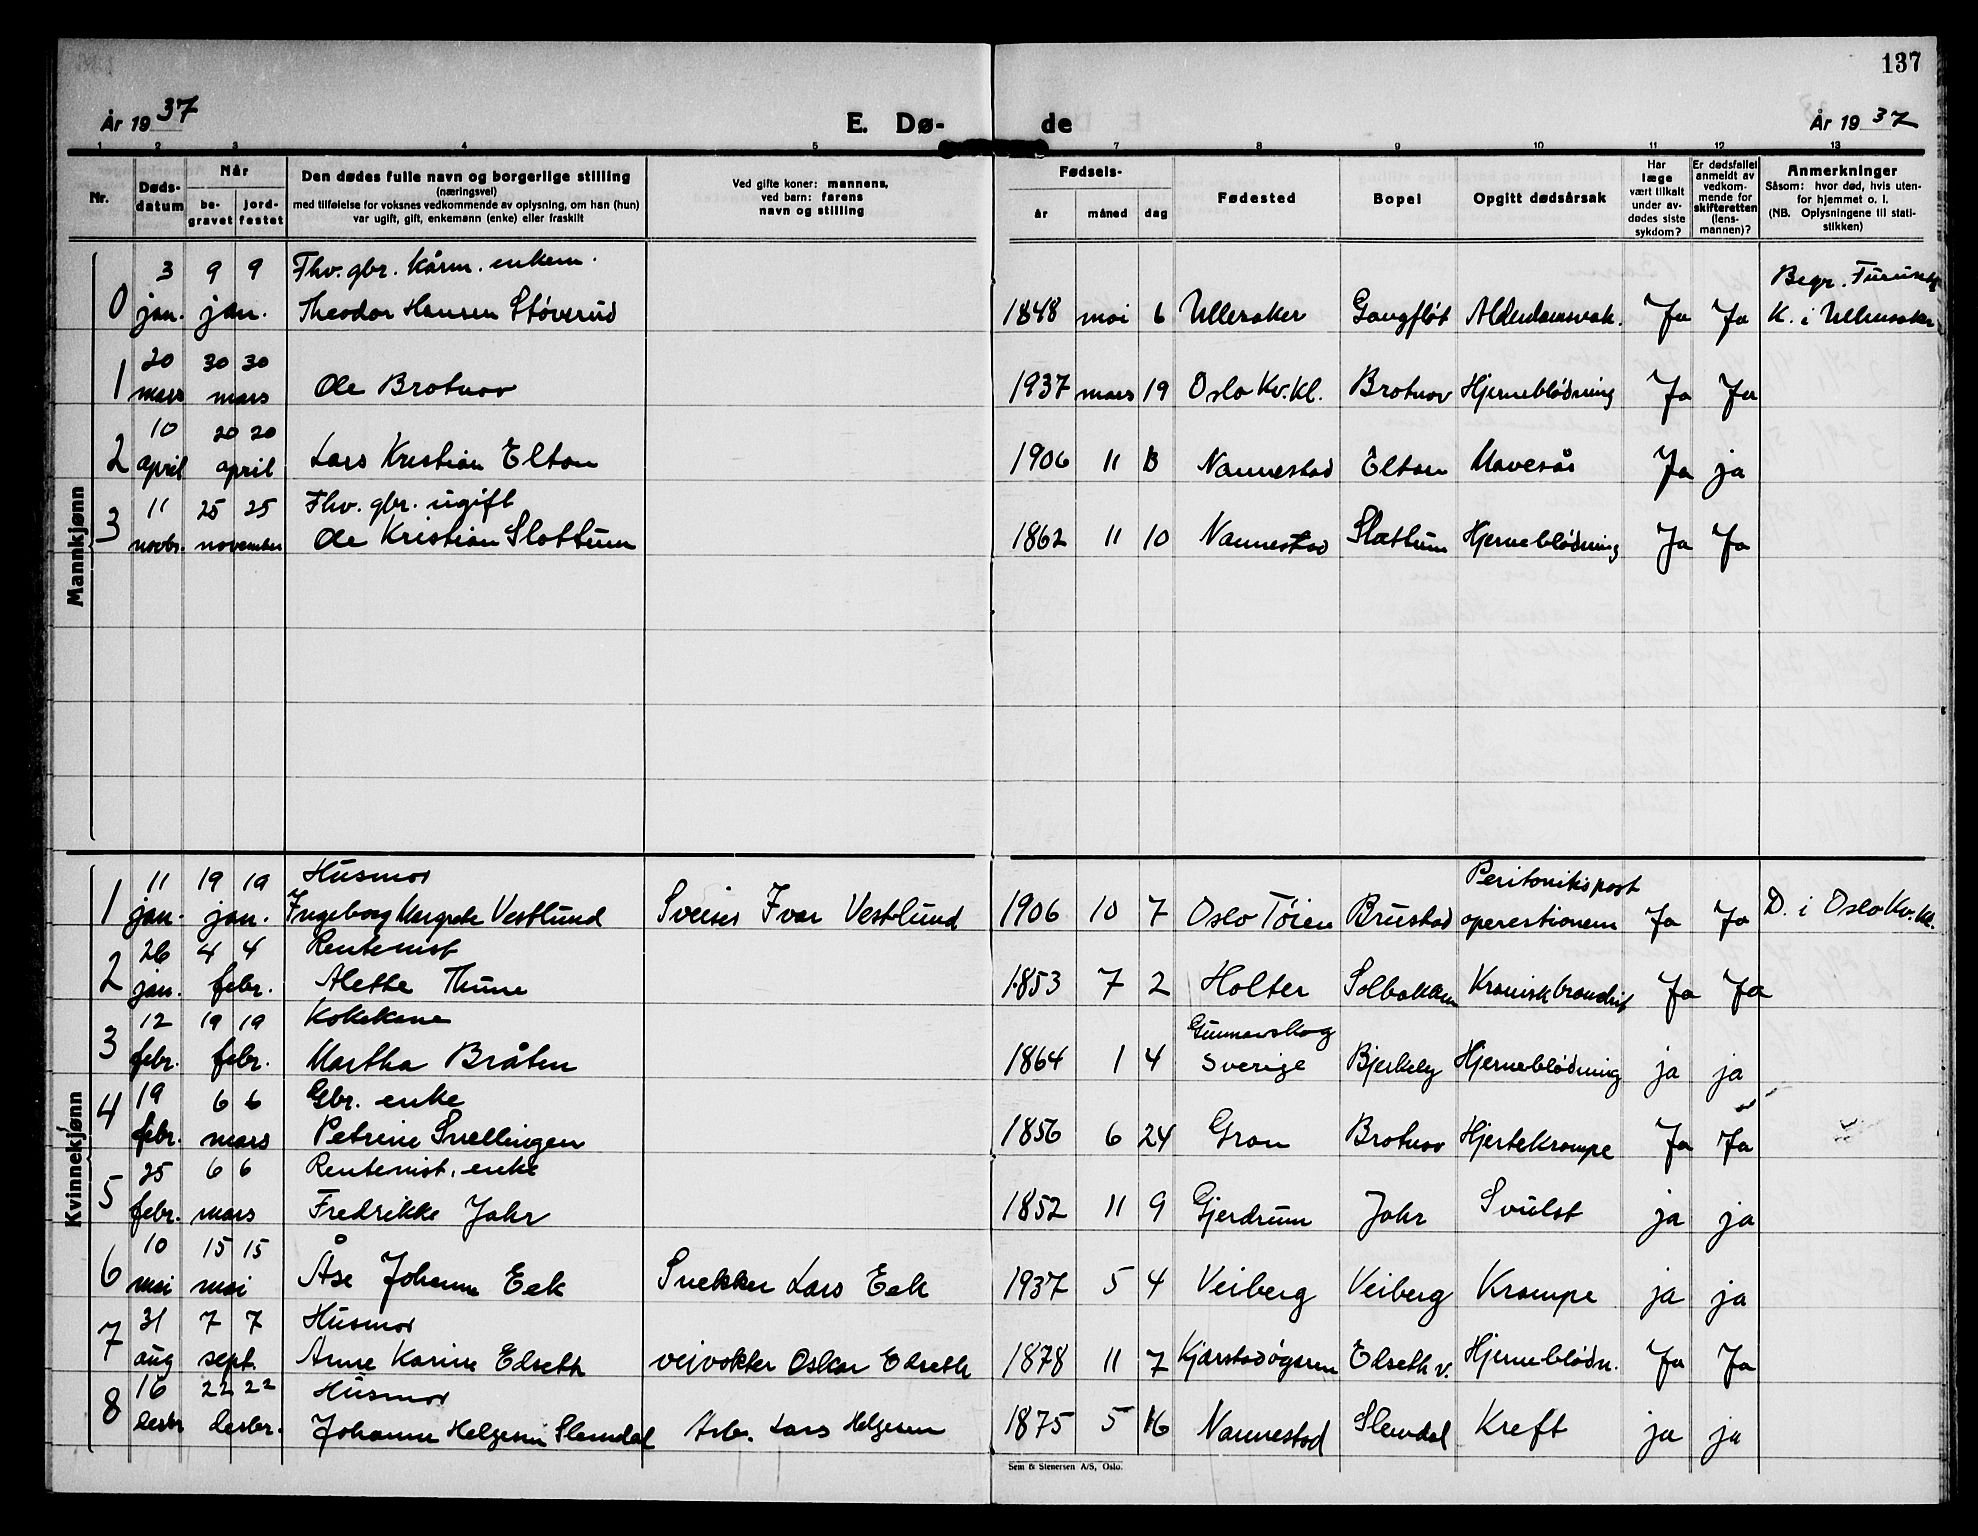 137
År 1937 E. Dø- de År 1937
1 2 3 4 5 7 8 9 10 11 12 13
Nr. Dødsdatum Når begravet jordfestet Den dødes fulle navn og borgerlige stilling (næringsvei) med tilføielse for voksnes vedkommende av oplysning, om han (hun) var ugift, gift, enkemann (enke) eller fraskilt Ved gifte koner: mannens, ved barn: farens navn og stilling Fødsels- år måned dag Fødested Bopel Opgitt dødsårsak Har læge vært tilkalt under avdødes siste sykdom? Er dødsfallet anmeldt av vedkommende for skifteretten (lensmannen)? Anmerkninger Såsom: hvor død, hvis utenfor hjemmet o. l. (NB. Oplysningene til statistikken)
Mannkjønn
3 9 9 Fhv. gbr. Kårm. enkem. Begr. Furuset
0 jan. jan. Theodor Hansen Støverud 1848 mai 6 Ullesaker Gaugfløt Alderdomsvak. Ja Ja K. i Ullensaker
20 30 30
1 mars mars Ole Brotnov 1937 mars 19 Oslo Kv. Kl. Brotnov Hjerneblødning Ja Ja
10 20 20
2 april april Lars Kristian Elton 1906 11 Nannestad Elton Mavesår Ja ja
11 25 25 Fhv. gbr. ugift
3 novbr. november Ole Kristian Slattum 1862 11 10 Nannestad Slattum Hjerneblødning Ja Ja
Kvinnekjønn
11 19 19 Husmor Peritonitis post
1 jan. jan. Ingeborg Margrete Vestlund Sveiser Ivar Vestlund 1906 10 7 Oslo Tøien Brustad operationem Ja Ja D. i Oslo Kv. Kl.
26 4 4 Rentenist
2 jan. febr. Alette Thune 1853 7 2 Holter Solbakken Kronisk brondkit Ja Ja
12 19 19 Kokekone Gunnarskog
3 febr. febr. Martha Bråten 1864 1 4 Sverige Bjerkely Hjerneblødning ja ja
19 6 6 Gbr. enke
4 febr. mars Petrine Snellingen 1856 6 24 Gran Brotnov Hjertekrampe Ja Ja
25 6 6 Rentenist. enke
5 febr. mars Fredrikke Jahr 1852 11 9 Gjerdrum Jahr Svulst ja ja
10 15 15
6 mai mai Åse Johanne Eek Snekker Lars Eek 1937 5 4 Veiberg Veiberg Krampe ja ja
31 7 7 Husmor
7 aug sept. Anne Karine Edseth veivokter Oskar Edseth 1878 11 7 Kjærstadøgaren Edseth v. Hjerneblødn. Ja Ja
16 22 22 Husmor
8 desbr desbr. Johanne Helgesen Slemdal Arb. Lars Helgesen 1875 5 16 Nannestad Slemdal Kreft ja ja
Sem & Stenersen A/S, Oslo.